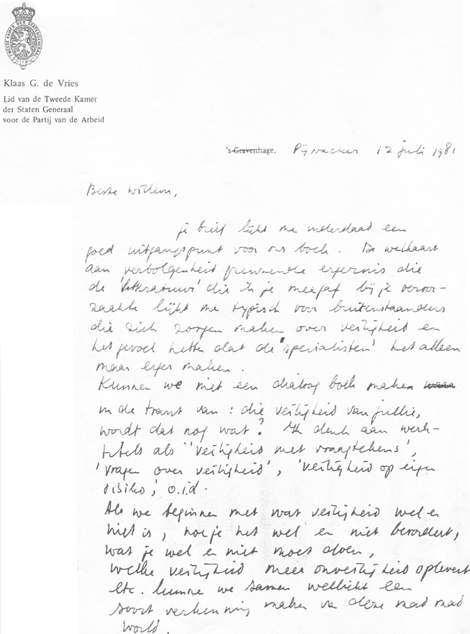 Klaas G. de Vries
Lid van de Tweede Kamer
der Staten Generaal
voor de Partij van de Arbeid
's-Gravenhage. Pijnacker 12 juli 1981
Beste Willem,
je brief lijkt me inderdaad een
goed uitgangspunt voor ons boek. De welhaast
aan verbolgenheid grenzende ergernis die
de 'literatuur' die ik je meegaf bij je veroor-
zaakte lijkt me typisch voor buitenstaanders
die zich zorgen maken over veiligheid en
het gevoel hebben dat de 'specialisten' het alleen
maar erger maken.
Kunnen we niet een dialoog boek maken
in de trant van: die veiligheid van jullie,
wordt dat nog wat? Ik denk aan werk-
titels als 'veiligheid met vraagtekens',
'vragen over veiligheid', 'veiligheid op eigen
risiko', o.i.d.
Als we beginnen met wat veiligheid wel en
niet is, hoe je het wel en niet bevordert,
wat je wel en niet moet doen,
welke veiligheid meer onveiligheid oplevert
etc. kunnen we samen wellicht een
soort verkenning maken van deze mad mad
world.